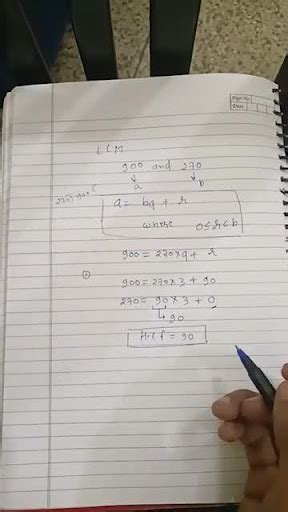 Page No
Date
LCM
900 and 270
a b
270)900(
a = bq + r
where 0≤r<b
900 = 270×q + r
①
900 = 270×3 + 90
270 = 90×3 + 0
90
H.C.f = 90